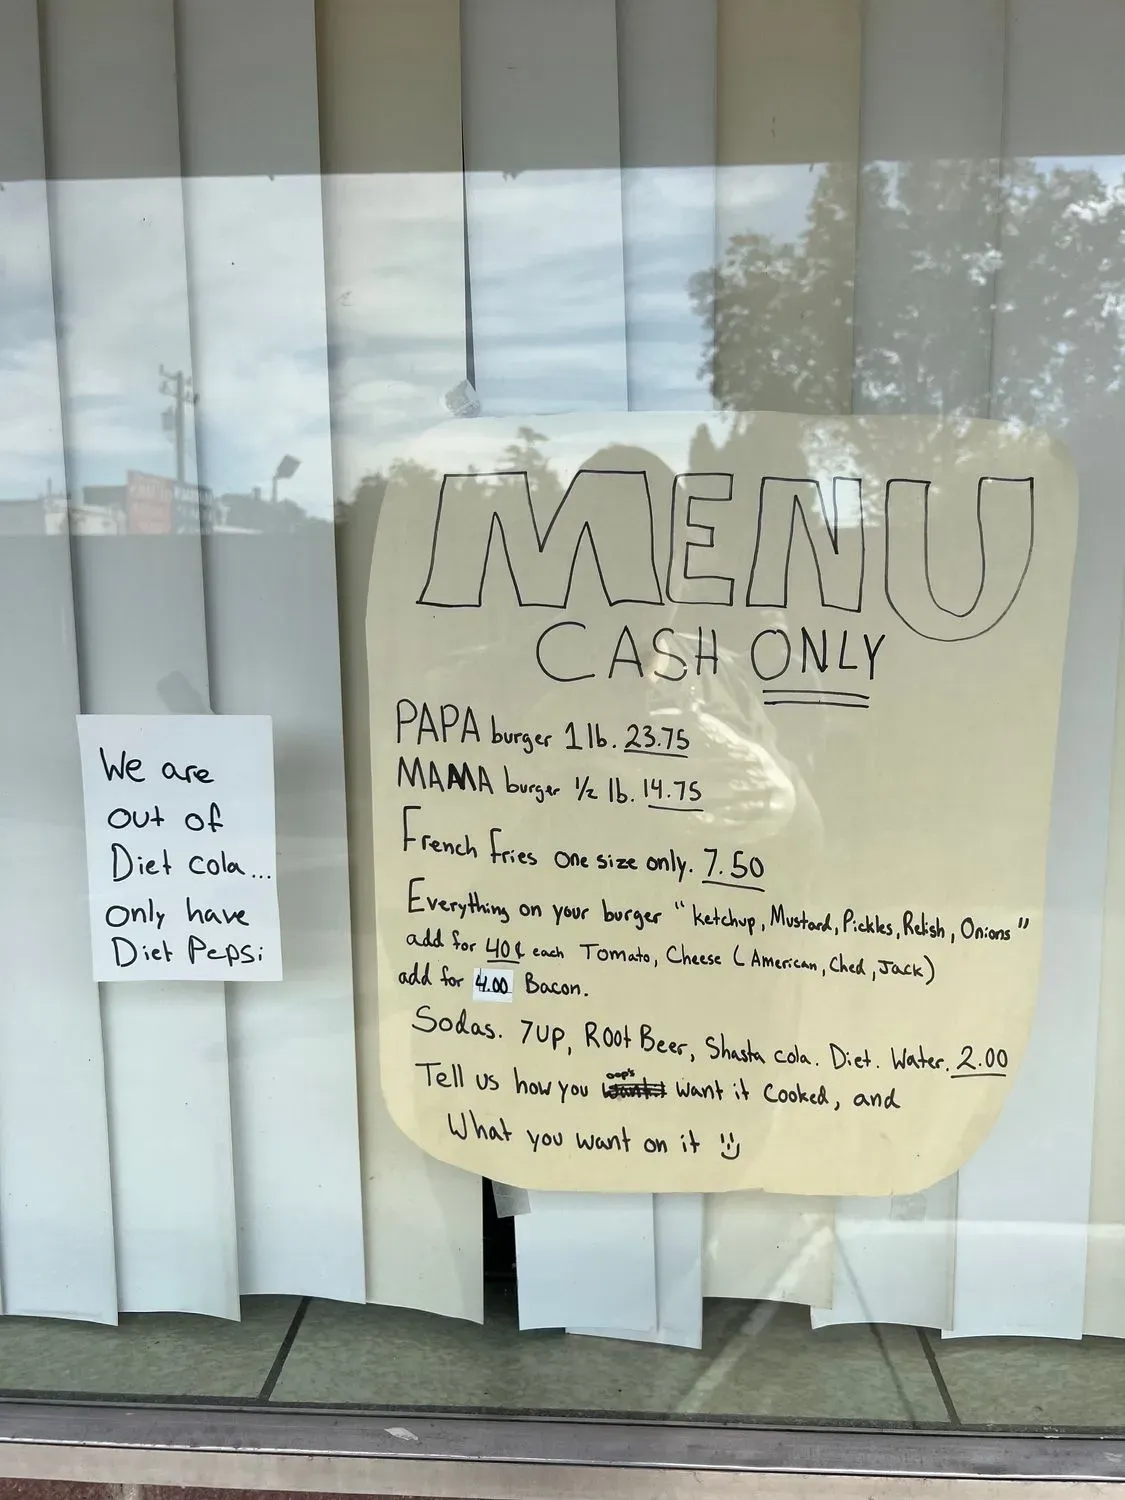 MENU
CASH ONLY
PAPA burger 1 lb. 23.75
MAMA burger 1/2 lb. 14.75
French fries one size only. 7.50
Everything on your burger "ketchup, Mustard, Pickles, Relish, Onions"
add for 40¢ each Tomato, Cheese (American, Ched, Jack)
add for 4.00 Bacon.
Sodas. 7up, Root Beer, Shasta cola. Diet. Water. 2.00
Tell us how you oop's want it Cooked, and
What you want on it
We are
out of
Diet cola...
only have
Diet Pepsi